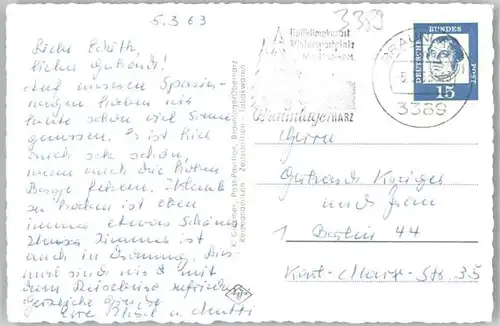 5.3.63
3389
Liebe Edith,
lieber Gerhard!
Auf unseren Spazier-
gängen haben wir
heute schön viel Sonne
genossen. Es ist hier
auch sehr schön,
wenn auch die hohen
Berge fehlen. Urlaub
zu haben ist eben
immer etwas Schönes.
Unser Zimmer ist
auch in Ordnung. Dies-
mal sind wir mit
dem Reisebüro zufrieden.
Herzliche Grüsse
Eure und Mutti
K. Pavillon, Braunlage/Oberharz
Reiseandenken · Zeitschriften · Tabakwaren
Heilklimakurort
Wintersportplatz
Braunlage HARZ
BRAUNLAGE
3389
DEUTSCHE BUNDESPOST
15
Herrn
Gerhard
und Frau
1 Berlin 44
Karl-Marx-Str. 35